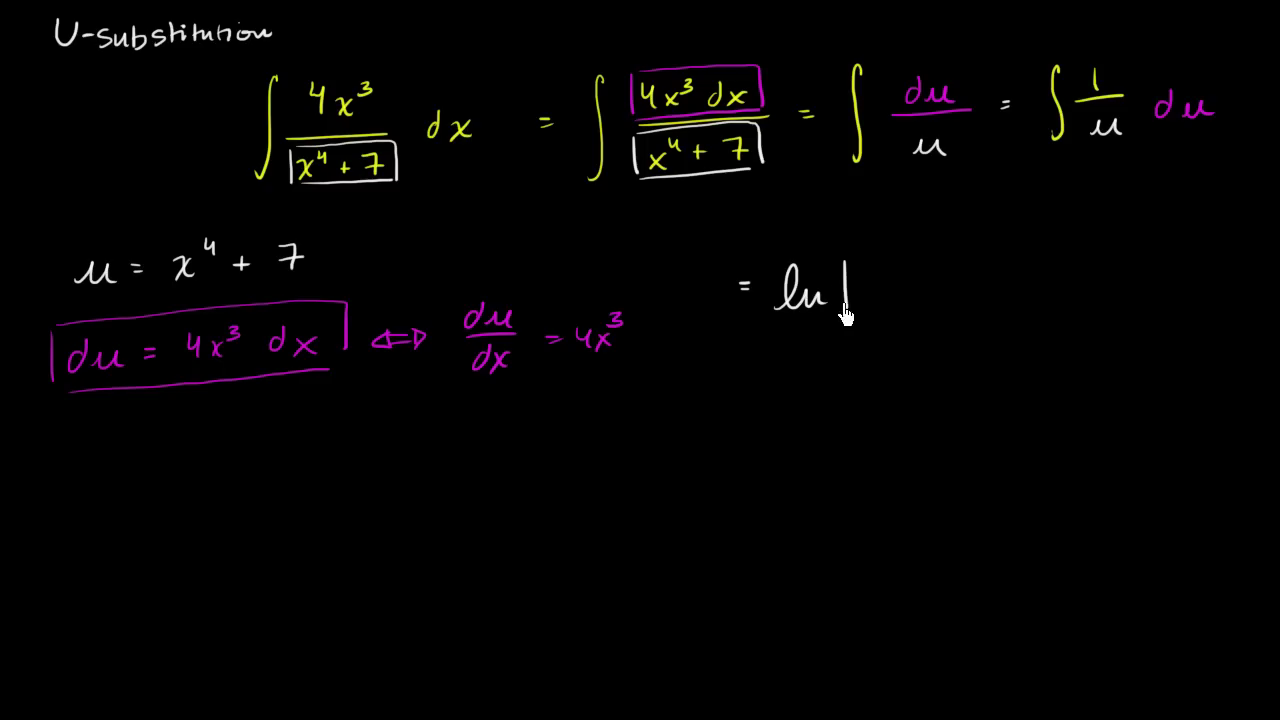 U-substitution
∫ 4x³/(x⁴ + 7) dx = ∫ (4x³ dx)/(x⁴ + 7) = ∫ du/u = ∫ 1/u du
u = x⁴ + 7
= ln |
du = 4x³ dx ⇔ du/dx = 4x³